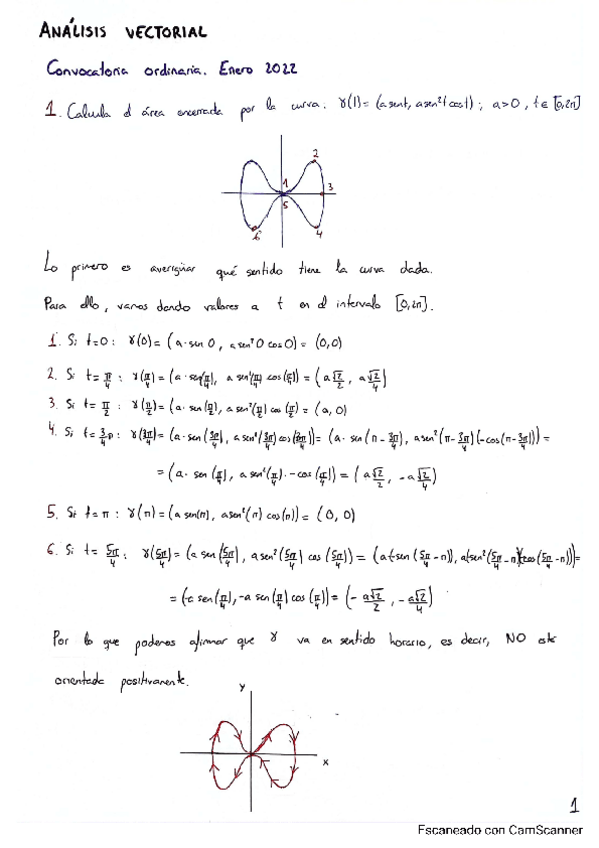 ANÁLISIS VECTORIAL
Convocatoria ordinaria. Enero 2022
1. Calcula el área encerrada por la curva: γ(t)=(a sent, a sen²t cost); a>0, t∈[0,2π]
2
1
3
5
6
4
Lo primero es averiguar qué sentido tiene la curva dada.
Para ello, vamos dando valores a t en el intervalo [0,2π].
1. Si t=0: γ(0)=(a·sen 0, a sen²0 cos 0)=(0,0)
2. Si t=π/4: γ(π/4)=(a·sen(π/4), a sen²(π/4) cos(π/4))=(a√2/2, a√2/4)
3. Si t=π/2: γ(π/2)=(a·sen(π/2), a sen²(π/2) cos(π/2))=(a,0)
4. Si t=3/4π: γ(3π/4)=(a·sen(3π/4), a sen²(3π/4) cos(3π/4))=(a·sen(π-3π/4), a sen²(π-3π/4)(-cos(π-3π/4)))=
=(a·sen(π/4), a sen²(π/4)·-cos(π/4))=(a√2/2, -a√2/4)
5. Si t=π: γ(π)=(a sen(π), a sen²(π) cos(π))=(0,0)
6. Si t=5π/4: γ(5π/4)=(a sen(5π/4), a sen²(5π/4) cos(5π/4))=(a(-sen(5π/4-π)), a(sen²(5π/4-π)(-cos(5π/4-π))=
=(-a sen(π/4), -a sen(π/4) cos(π/4))=(-a√2/2, -a√2/4)
Por lo que podemos afirmar que γ va en sentido horario, es decir, NO está
orientada positivamente.
y
x
1
Escaneado con CamScanner